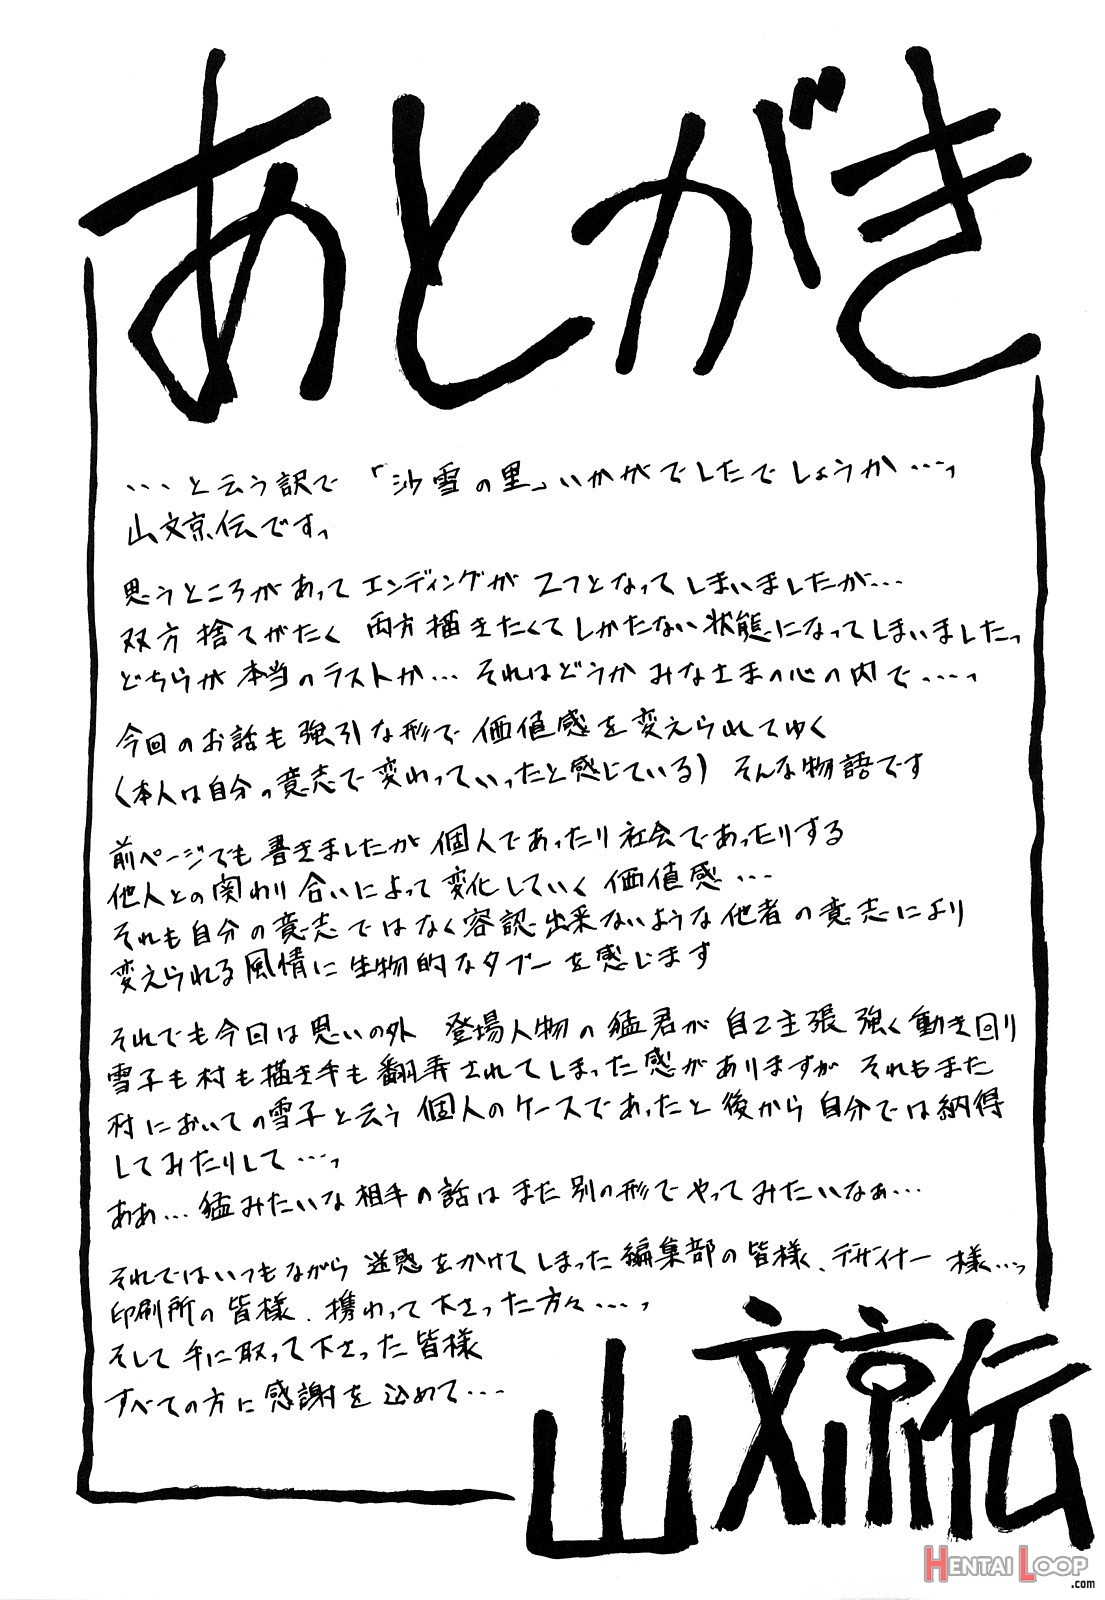 あとがき
…と云う訳で「沙雪の里」いかがでしたでしょうか…っ
山文京伝ですっ
思うところがあってエンディングが2つとなってしまいましたが…
双方捨てがたく 両方描きたくてしかたない状態になってしまいましたっ
どちらが本当のラストか… それはどうか みなさまの心の内で…っ
今回のお話も強引な形で価値感を変えられてゆく
(本人は自分の意志で変わっていったと感じている) そんな物語です
前ページでも書きましたが 個人であったり社会であったりする
他人との関わり合いによって変化していく価値感…
それも自分の意志ではなく容認出来ないような他者の意志により
変えられる風情に生物的なタブーを感じます
それでも今回は思いの外 登場人物の猛君が自己主張強く動き回り
雪子も村も描き手も翻弄されてしまった感がありますが それもまた
村においての雪子と云う個人のケースであったと後から自分では納得
してみたりして…っ
ああ… 猛みたいな相手の話はまた別の形でやってみたいなぁ…
それではいつもながら迷惑をかけてしまった編集部の皆様、デザイナー様…っ
印刷所の皆様、携わって下さった方々…っ
そして手に取って下さった皆様
すべての方に感謝を込めて…
山文京伝
HENTAI LOOP
.com